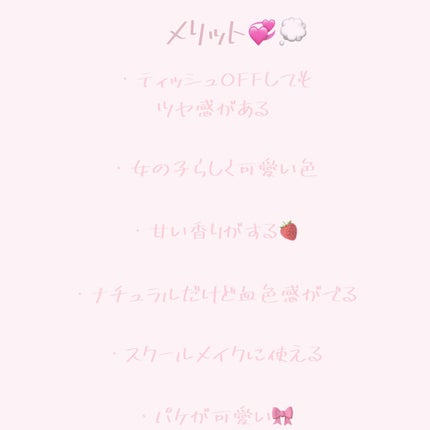 メリット💞💭
・ティッシュOFFしても
ツヤ感がある
・女の子らしく可愛い色
・甘い香りがする🍓
・ナチュラルだけど血色感がでる
・スクールメイクに使える
・パケが可愛い🎀